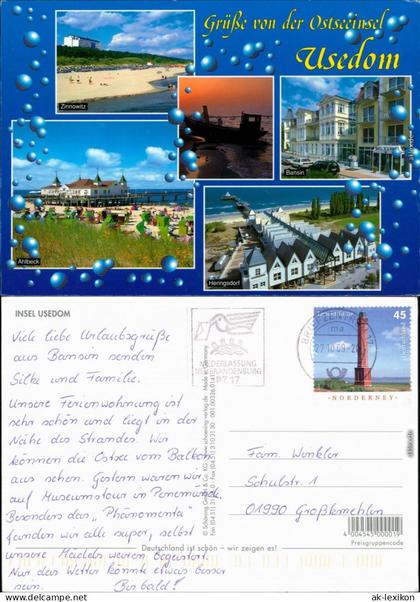 Grüße von der Ostseeinsel
Usedom
Zinnowitz
Bansin
Ahlbeck
Heringsdorf
INSEL USEDOM
Viele liebe Urlaubsgrüße
aus Bansin senden
Silke und Familie.
Unsere Ferienwohnung ist
sehr schön und liegt in der
Nähe des Strandes. Wir
können die Ostsee vom Balkon
aus sehen. Gestern waren wir
auf Museumstour in Penemünde.
Besonders das „Phänomenta"
fanden wir alle super, selbst
unsere Mädels waren begeistert.
Nur das Wetter könnte etwas besser
sein. Bis bald!
NIEDERLASSUNG
NEUBRANDENBURG
BZ 17
BRIEFZENTRUM 17
45
NORDERNEY
Fam. Winkler
Schulstr. 1
01990 Großkmehlen
Deutschland ist schön – wir zeigen es!
4 004545 000019
Preisgruppencode
www.ak-ansichtskarten.de
ak-lexikon.com